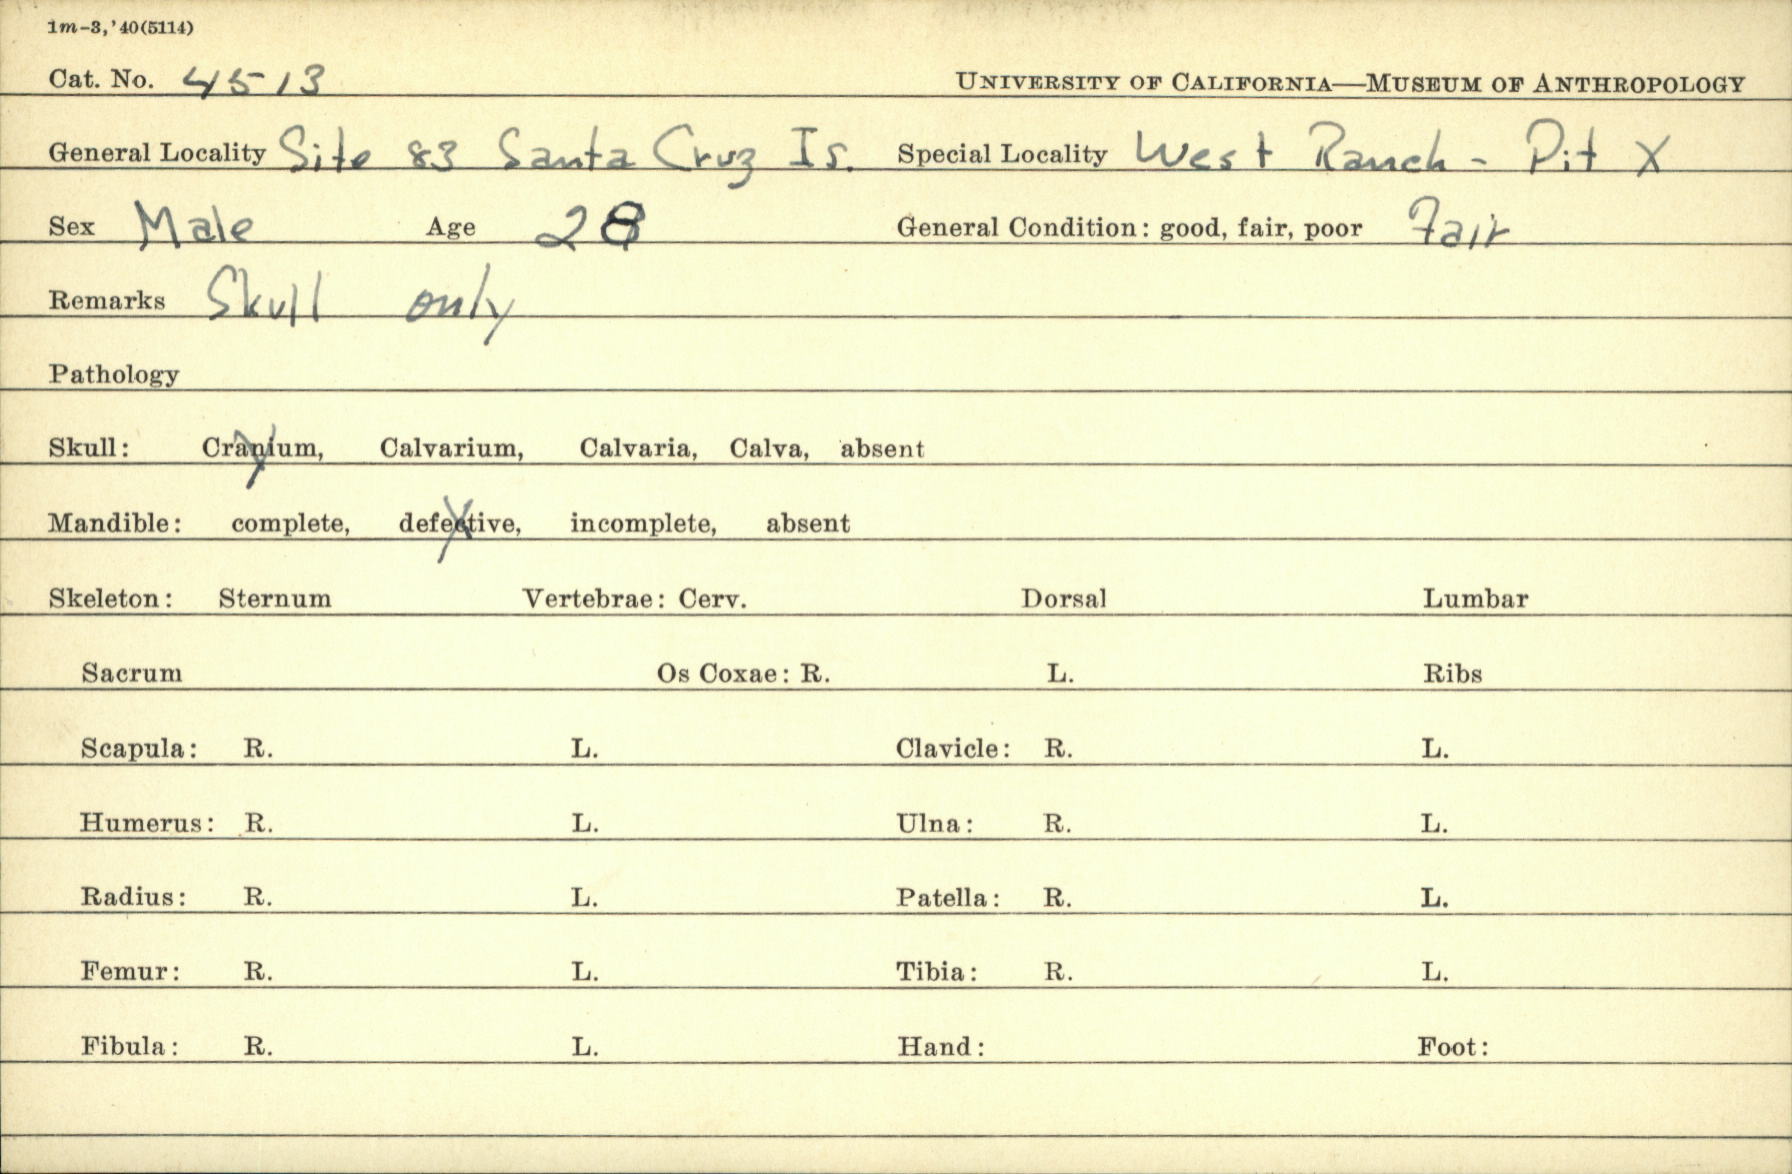 1m-3,'40(5114)
Cat. No. 4513 UNIVERSITY OF CALIFORNIA—MUSEUM OF ANTHROPOLOGY
General Locality Site 83 Santa Cruz Is. Special Locality West Ranch - Pit X
Sex Male Age 28 General Condition: good, fair, poor Fair
Remarks Skull only
Pathology
Skull: Cranium, Calvarium, Calvaria, Calva, absent
Mandible: complete, defective, incomplete, absent
Skeleton: Sternum Vertebrae: Cerv. Dorsal Lumbar
Sacrum Os Coxae: R. L. Ribs
Scapula: R. L. Clavicle: R. L.
Humerus: R. L. Ulna: R. L.
Radius: R. L. Patella: R. L.
Femur: R. L. Tibia: R. L.
Fibula: R. L. Hand: Foot: